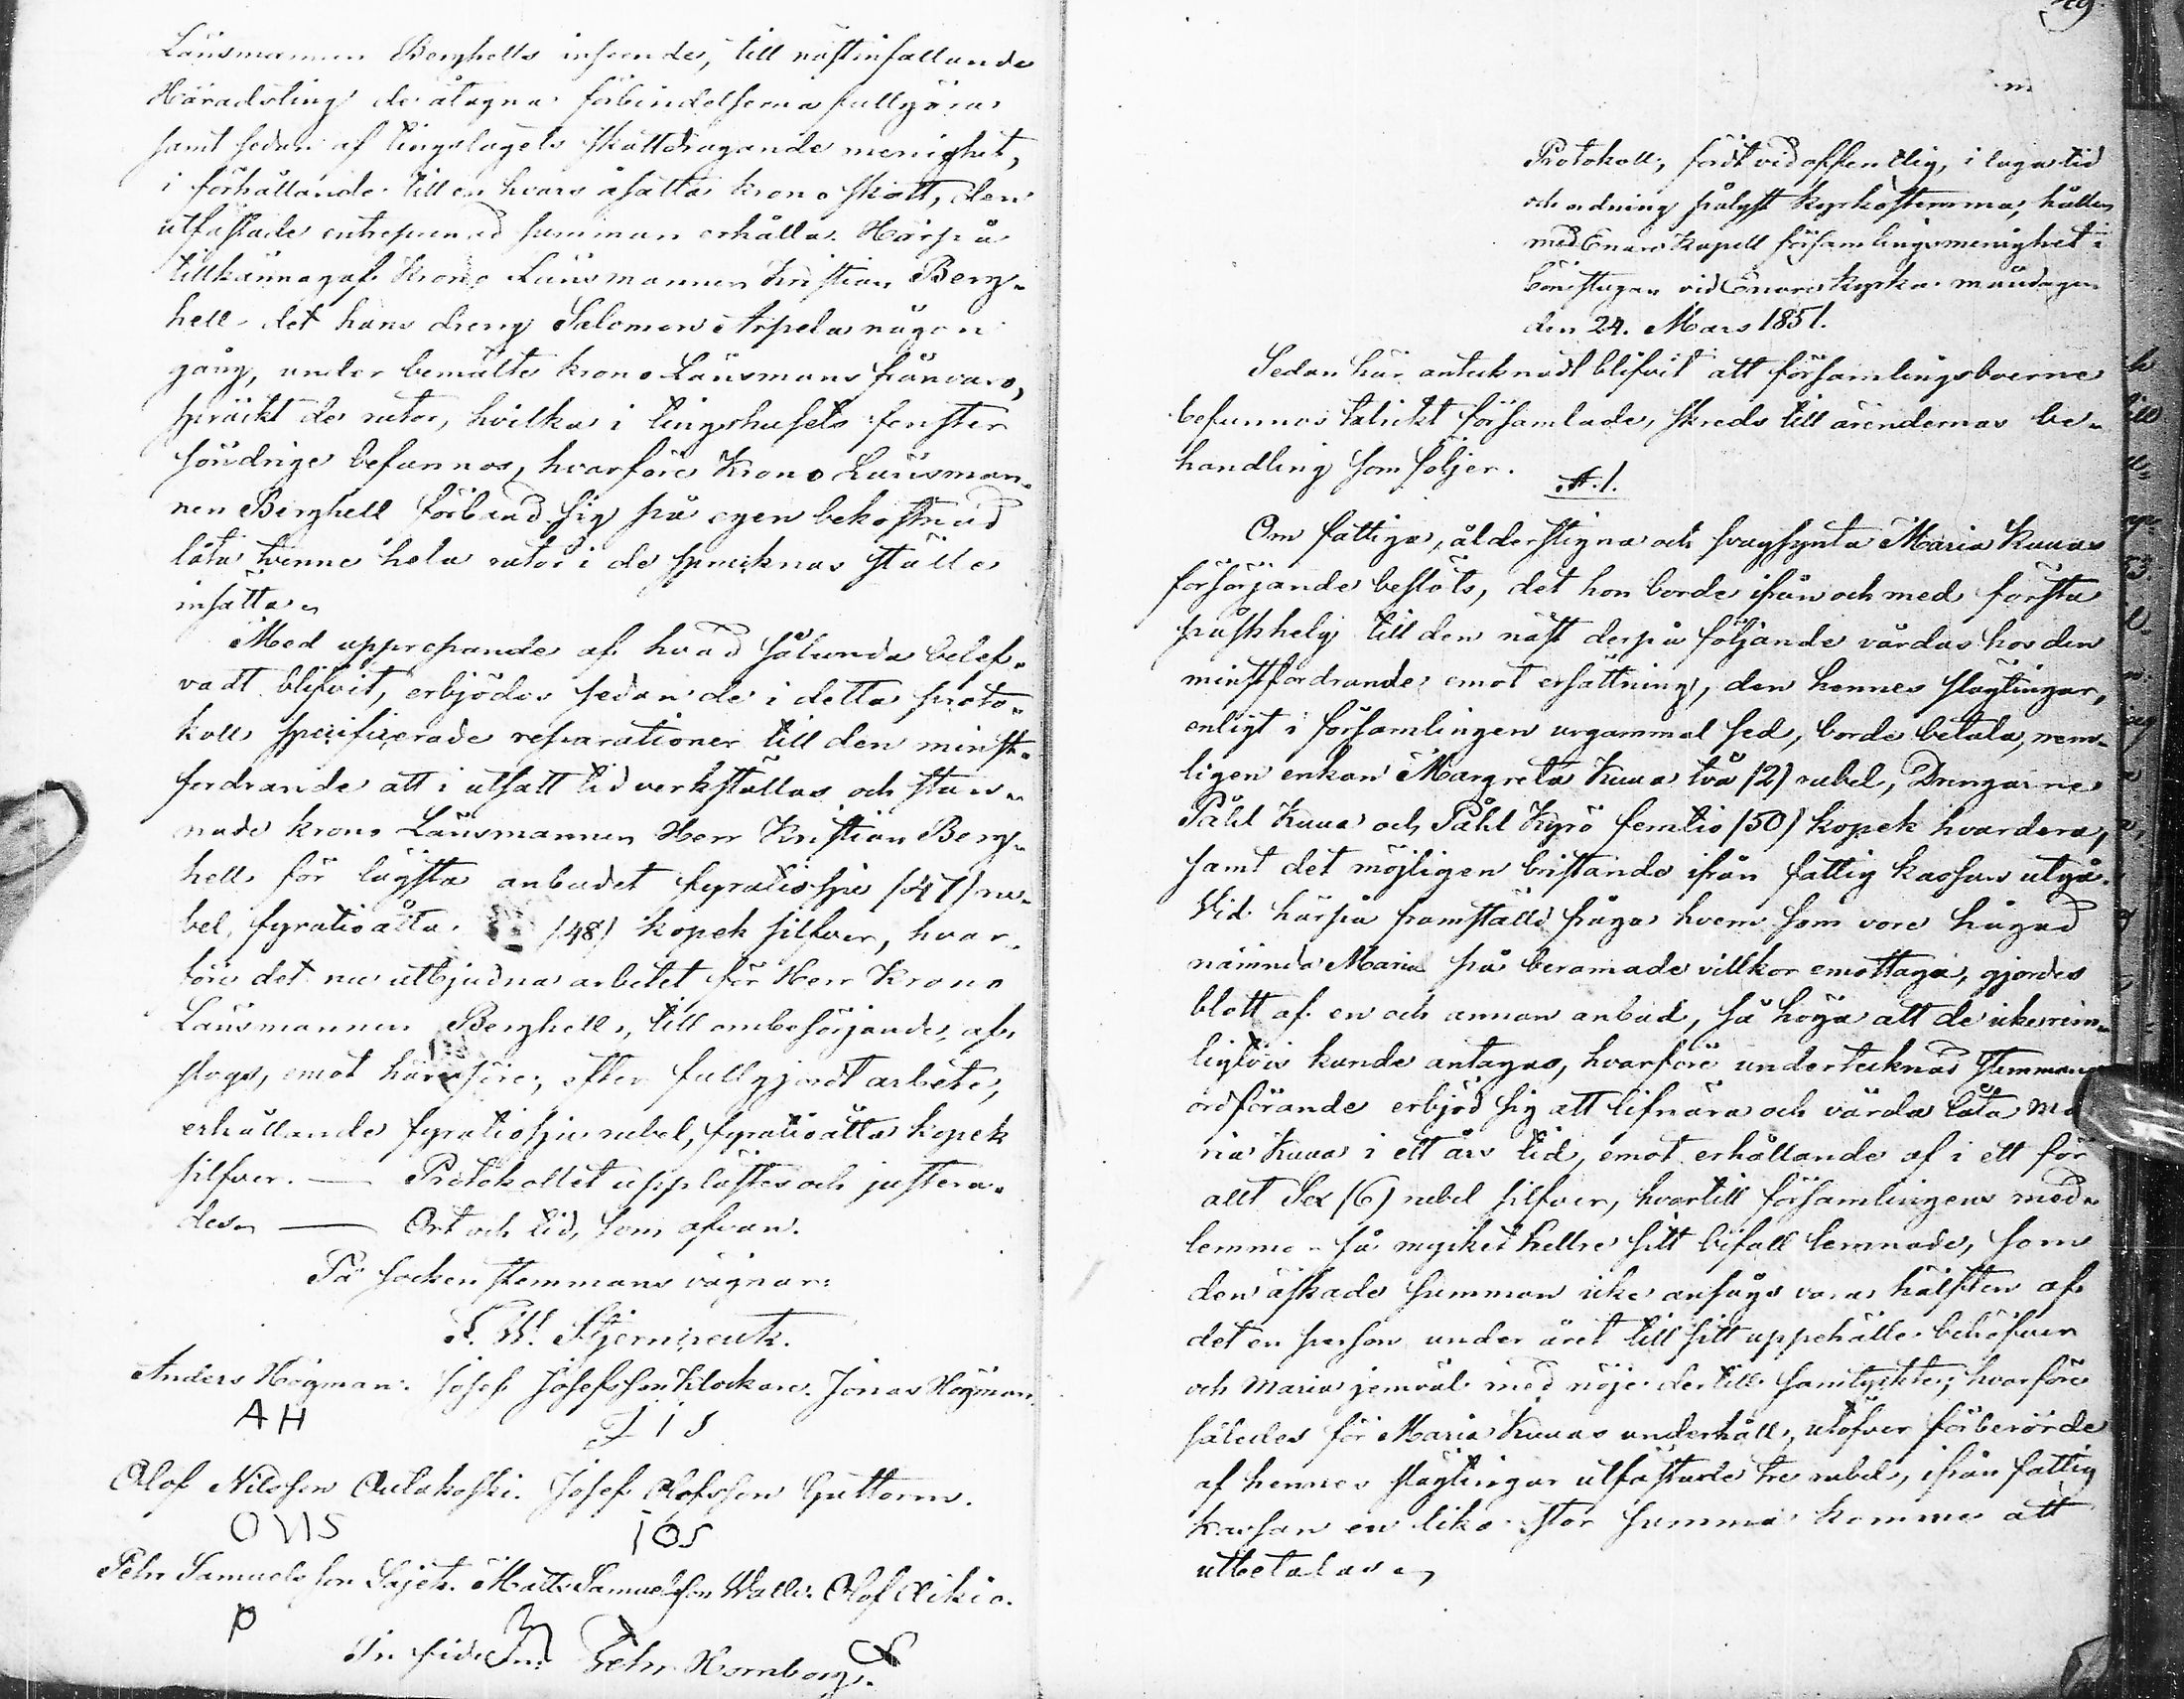 Länsmannen Berghells inseende, till nästinfallande
Häradsting de åtagna förbindelserna fullgöras
samt sedan af tingslagets skattdragande menighet,
i förhållande till en hvars åsatta krono skatt, den
utfästade entreprenad summan erhålla. Härpå
tillkännagaf Krono Länsmannen Kristian Berg-
hell det hans dreng Salomon Arpela någon
gång, under bemälte krono Länsmans frånvaro,
spräckt de rutor, hvilka i tingshusets fenster
söndrige befunnos, hvarföre Krono Länsman-
nen Berghell förband sig på egen bekostnad
låta tvenne hela rutor i de spräcknas ställe
insätta.
Med upprepande af hvad sålunda belef-
vadt blifvit, erbjödos sedan de i detta proto-
koll specificerade reparationer till den minst-
fordrande att i utsatt tid verkställas och stan-
nade krono Länsmannen Herr Kristian Berg-
hell för lägsta anbudet fyratiosju (47) ru-
bel, fyratioåtta (48) kopek silfver, hvar-
före det nu utbjudna arbetet för Herr Krono
Länsmannen Berghell, till ombesörjande, af-
slogs, emot härföre, efter fullgjordt arbete,
erhållande fyratiosju rubel, fyratioåtta kopek
silfver. — Protokollet upplästes och justera-
des. — Ort och tid, som ofvan.
På sockenstemmans vägnar:
F. W. Stjerncreutz.
Anders Högman. Josef Josefsson Klockare. Jonas Högman.
AH JIS
Olof Nilsson Aulakoski. Josef Olofsson Guttorm.
ONS IOS
Pehr Samuelsson Sajets. Matts Samuelsson Walle. Olof Aikio.
P
In fidem: Pehr Hornborg.
49
Protokoll, fördt vid offentlig, i laga tid
och ordning pålyst kyrkostemma, hållen
med Enare Kapell församlingsmenighet i
bönstugan vid Enare kyrka måndagen
den 24. Mars 1851.
Sedan här antecknadt blifvit att församlingsboerne
befunnos talrikt församlade, skreds till ärendernas be-
handling som följer.
§. 1.
Om fattiga, ålderstigna och svagsynta Maria Kuuas
försörjande beslöts, det hon borde ifrån och med första
påskhelg till den näst derpå följande vårdas hos den
minstfordrande emot ersättning, den hennes slägtingar,
enligt i församlingen urgammal sed, borde betala, nem-
ligen enkan Margreta Kuua två (2) rubel, Drengarne
Påhl Kuua och Påhl Kyrö femtio (50) kopek hvardera,
samt det möjligen bristande ifrån fattig kassan utgå.
Vid härpå framställd fråga hvem som vore hågad
nämnda Maria på beramade villkor emottaga, gjordes
blott af en och annan anbud, så höga att de icke rim-
ligtvis kunde antagas, hvarföre undertecknad Stemmans
ordförande erbjöd sig att lifnära och vårda låta Ma
ria Kuua i ett års tid, emot erhållande af i ett för
allt Sex (6) rubel silfver, hvartill församlingens med-
lemmar så mycket hellre sitt bifall lemnade, som
den äskade summan icke ansågs vara hälften af
det en person under året till sitt uppehälle behöfver
och Maria jemväl med nöje dertill samtyckte; hvarföre
således för Maria Kuuas underhåll, utöfver förberörde
af hennes slägtingar utfästade tre rubel, ifrån fattig
kassan en lika stor summa komme att
utbetalas.